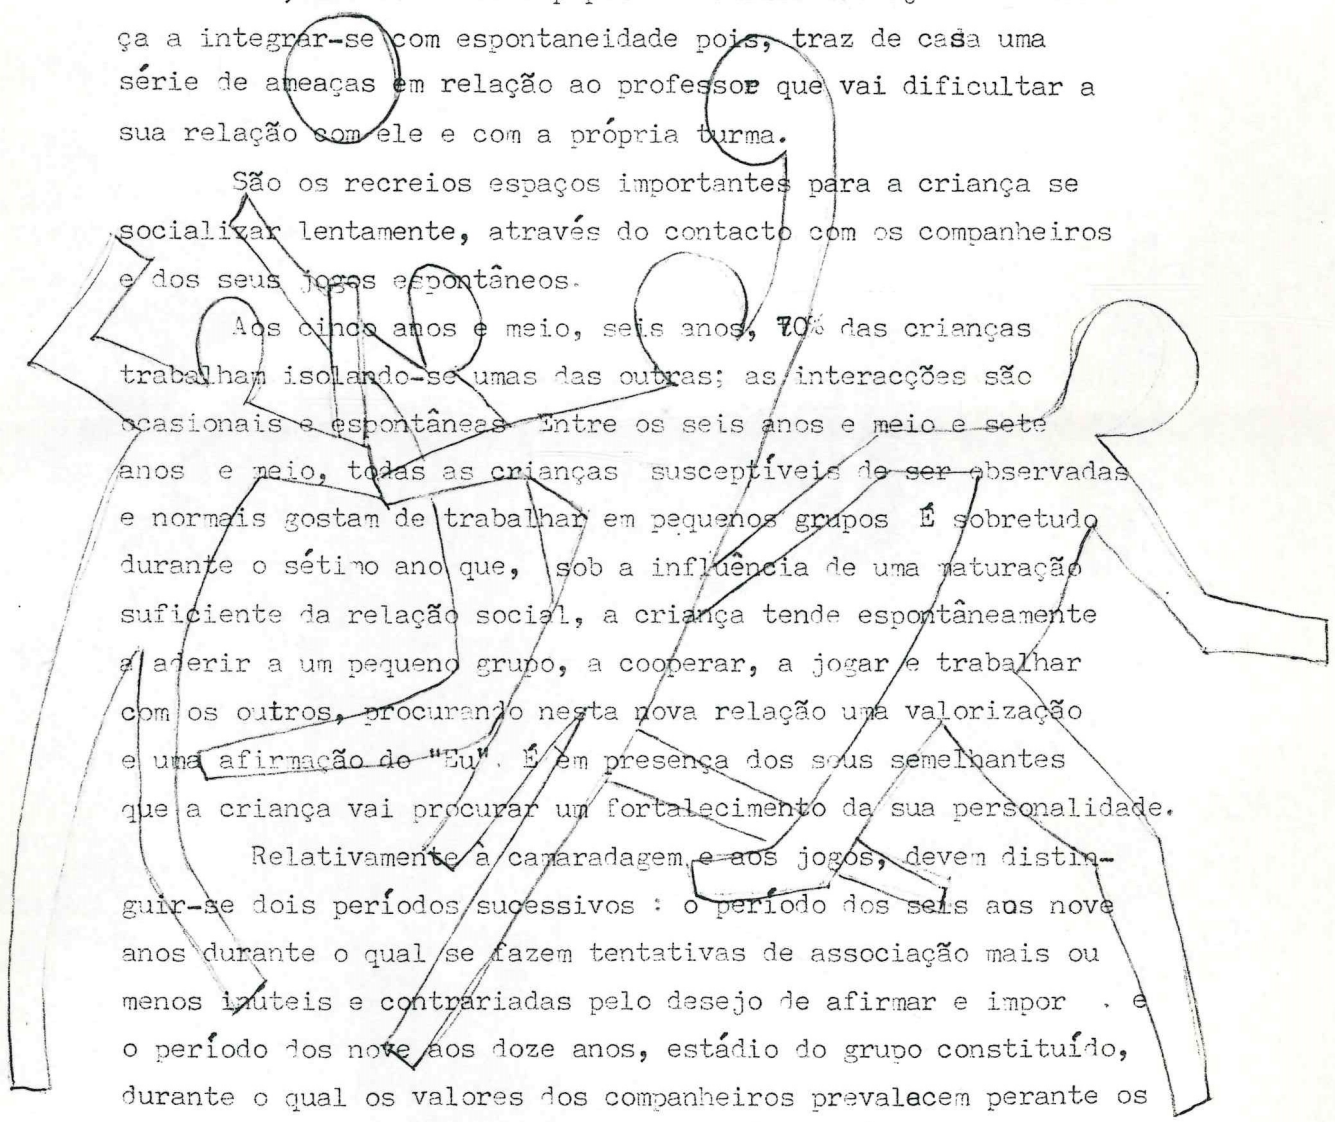 ça a integrar-se com espontaneidade pois, traz de casa uma
série de ameaças em relação ao professor que vai dificultar a
sua relação com ele e com a própria turma.
São os recreios espaços importantes para a criança se
socializar lentamente, através do contacto com os companheiros
e dos seus jogos espontâneos.
Aos cinco anos e meio, seis anos, 70% das crianças
trabalham isolando-se umas das outras; as interacções são
ocasionais e espontâneas Entre os seis anos e meio e sete
anos e meio, todas as crianças susceptíveis de ser observadas
e normais gostam de trabalhar em pequenos grupos É sobretudo
durante o sétimo ano que, sob a influência de uma maturação
suficiente da relação social, a criança tende espontâneamente
a aderir a um pequeno grupo, a cooperar, a jogar e trabalhar
com os outros, procurando nesta nova relação uma valorização
e uma afirmação do "Eu". É em presença dos seus semelhantes
que a criança vai procurar um fortalecimento da sua personalidade.
Relativamente à camaradagem e aos jogos, devem distin-
guir-se dois períodos sucessivos : o período dos seis aos nove
anos durante o qual se fazem tentativas de associação mais ou
menos inuteis e contrariadas pelo desejo de afirmar e impor . e
o período dos nove aos doze anos, estádio do grupo constituído,
durante o qual os valores dos companheiros prevalecem perante os